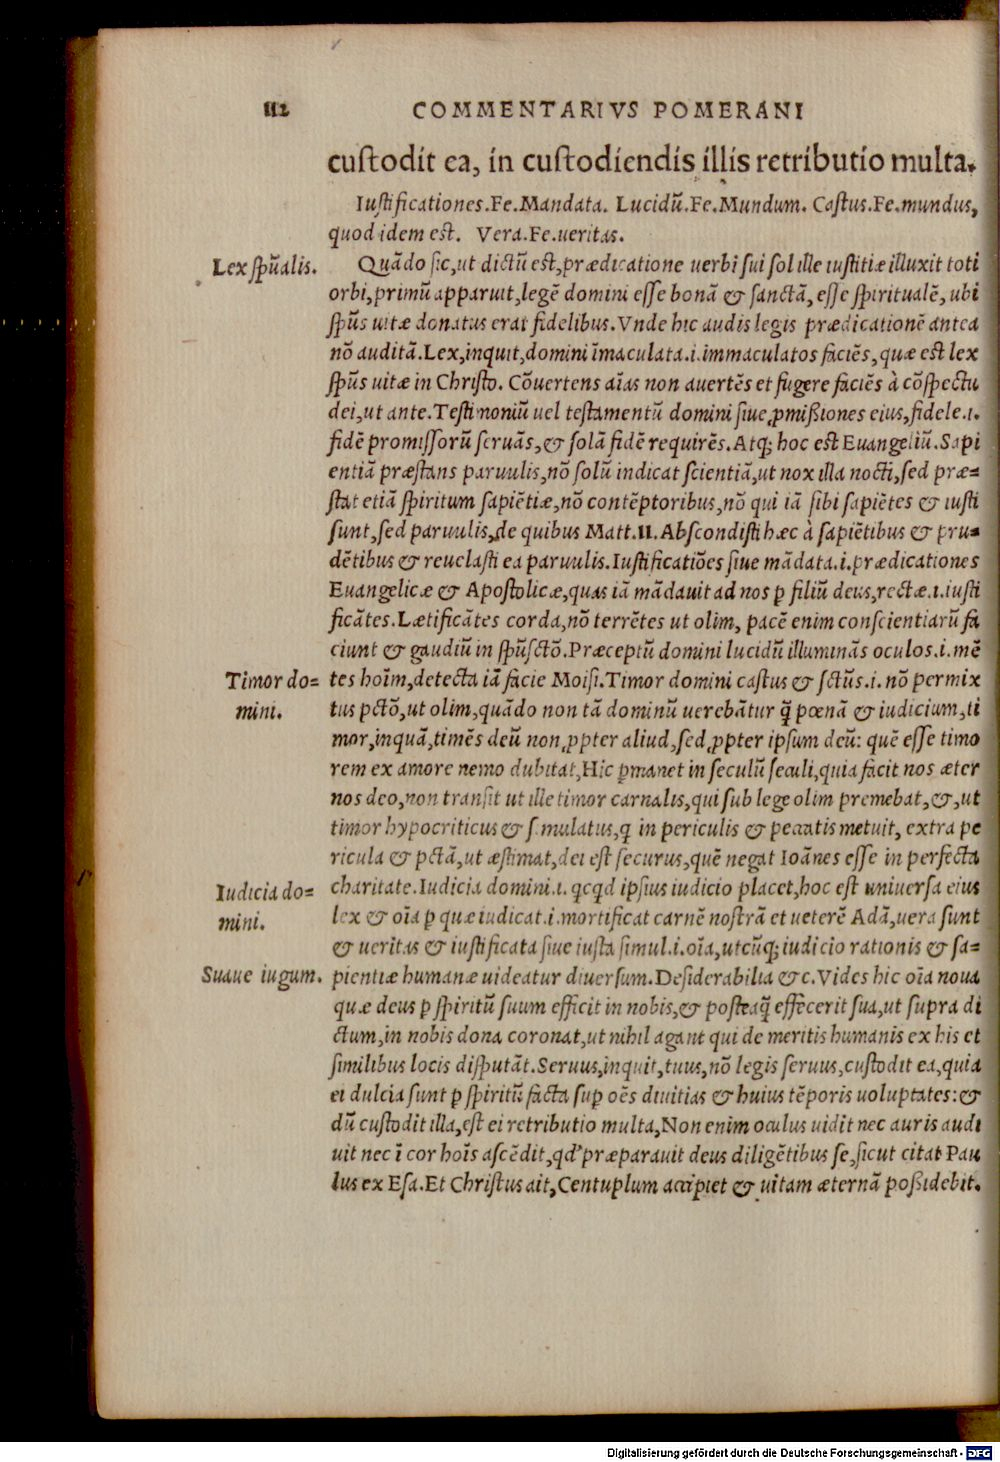 112 COMMENTARIVS POMERANI
cuſtodit ea, in cuſtodiendis illis retributio multa.
Iuſtificationes.Fe.Mandata. Lucidū.Fe.Mundum. Caſtus.Fe.mundus,
quod idem eſt. Vera.Fe.ueritas.
Lex ſpūalis.
Quādo ſic,ut dictū eſt,prædicatione uerbi ſui ſol ille iuſtitiæ illuxit toti
orbi,primū apparuit,legē domini eſſe bonā & ſanctā,eſſe ſpiritualē, ubi
ſpūs uitæ donatus erat fidelibus.Vnde hic audis legis prædicationē antea
nō auditā.Lex,inquit,domini īmaculata.i.immaculatos faciēs,quæ eſt lex
ſpūs uitæ in Chriſto. Cōuertens aīas non auertēs et fugere faciēs à cōſpectu
dei,ut ante.Teſtimoniū uel teſtamentū domini ſiue ꝓmißiones eius,fidele.i.
fidē promiſſorū ſeruās,& ſolā fidē requirēs.Atq; hoc eſt Euangeliū.Sapi
entiā præſtans paruulis,nō ſolū indicat ſcientiā,ut nox illa nocti,ſed præ=
ſtat etiā ſpiritum ſapiētiæ,nō contēptoribus,nō qui iā ſibi ſapiētes & iuſti
ſunt,ſed paruulis,de quibus Matt.11.Abſcondiſti hæc à ſapiētibus & pru=
dētibus & reuelaſti ea paruulis.Iuſtificatiōes ſiue mādata.i.prædicationes
Euangelicæ & Apoſtolicæ,quas iā mādauit ad nos ꝑ filiū deus,rectæ.i.iuſti
ficātes.Lætificātes corda,nō terrētes ut olim, pacē enim conſcientiarū fa
ciunt & gaudiū in ſpūſctō.Præceptū domini lucidū illuminās oculos.i.mē
Timor do=
mini.
tes hoīm,detecta iā facie Moiſi.Timor domini caſtus & ſctūs.i. nō permix
tus pctō,ut olim,quādo non tā dominū uerebātur q̄ pœnā & iudicium,ti
mor,inquā,timēs deū non ꝓpter aliud,ſed ꝓpter ipſum deū: quē eſſe timo
rem ex amore nemo dubitat,Hic ꝑmanet in ſeculū ſeculi,quia facit nos æter
nos deo,non tranſit ut ille timor carnalis,qui ſub lege olim premebat,&,ut
timor hypocriticus & ſimulatus,q in periculis & peccatis metuit, extra pe
ricula & pctā,ut æſtimat,dei eſt ſecurus,quē negat Ioānes eſſe in perfecta
Iudicia do=
mini.
charitate.Iudicia domini.i. qcqd ipſius iudicio placet,hoc eſt uniuerſa eius
lex & oīa ꝑ quæ iudicat.i.mortificat carnē noſtrā et ueterē Adā,uera ſunt
& ueritas & iuſtificata ſiue iuſta ſimul.i.oīa,utcūq; iudicio rationis & ſa=
Suaue iugum.
pientiæ humanæ uideatur diuerſum.Deſiderabilia &c.Vides hic oīa noua
quæ deus ꝑ ſpiritū ſuum efficit in nobis,& poſteaq̄ effecerit ſua,ut ſupra di
ctum,in nobis dona coronat,ut nihil agant qui de meritis humanis ex his et
ſimilibus locis diſputāt.Seruus,inquit,tuus,nō legis ſeruus,cuſtodit ea,quia
ei dulcia ſunt ꝑ ſpiritū facta ſuꝑ oēs diuitias & huius tēporis uoluptates:&
dū cuſtodit illa,eſt ei retributio multa,Non enim oculus uidit nec auris audi
uit nec ī cor hoīs aſcēdit,qd' præparauit deus diligētibus ſe,ſicut citat Pau
lus ex Eſa.Et Chriſtus ait,Centuplum accipiet & uitam æternā poßidebit.
Digitalisierung gefördert durch die Deutsche Forschungsgemeinschaft - DFG